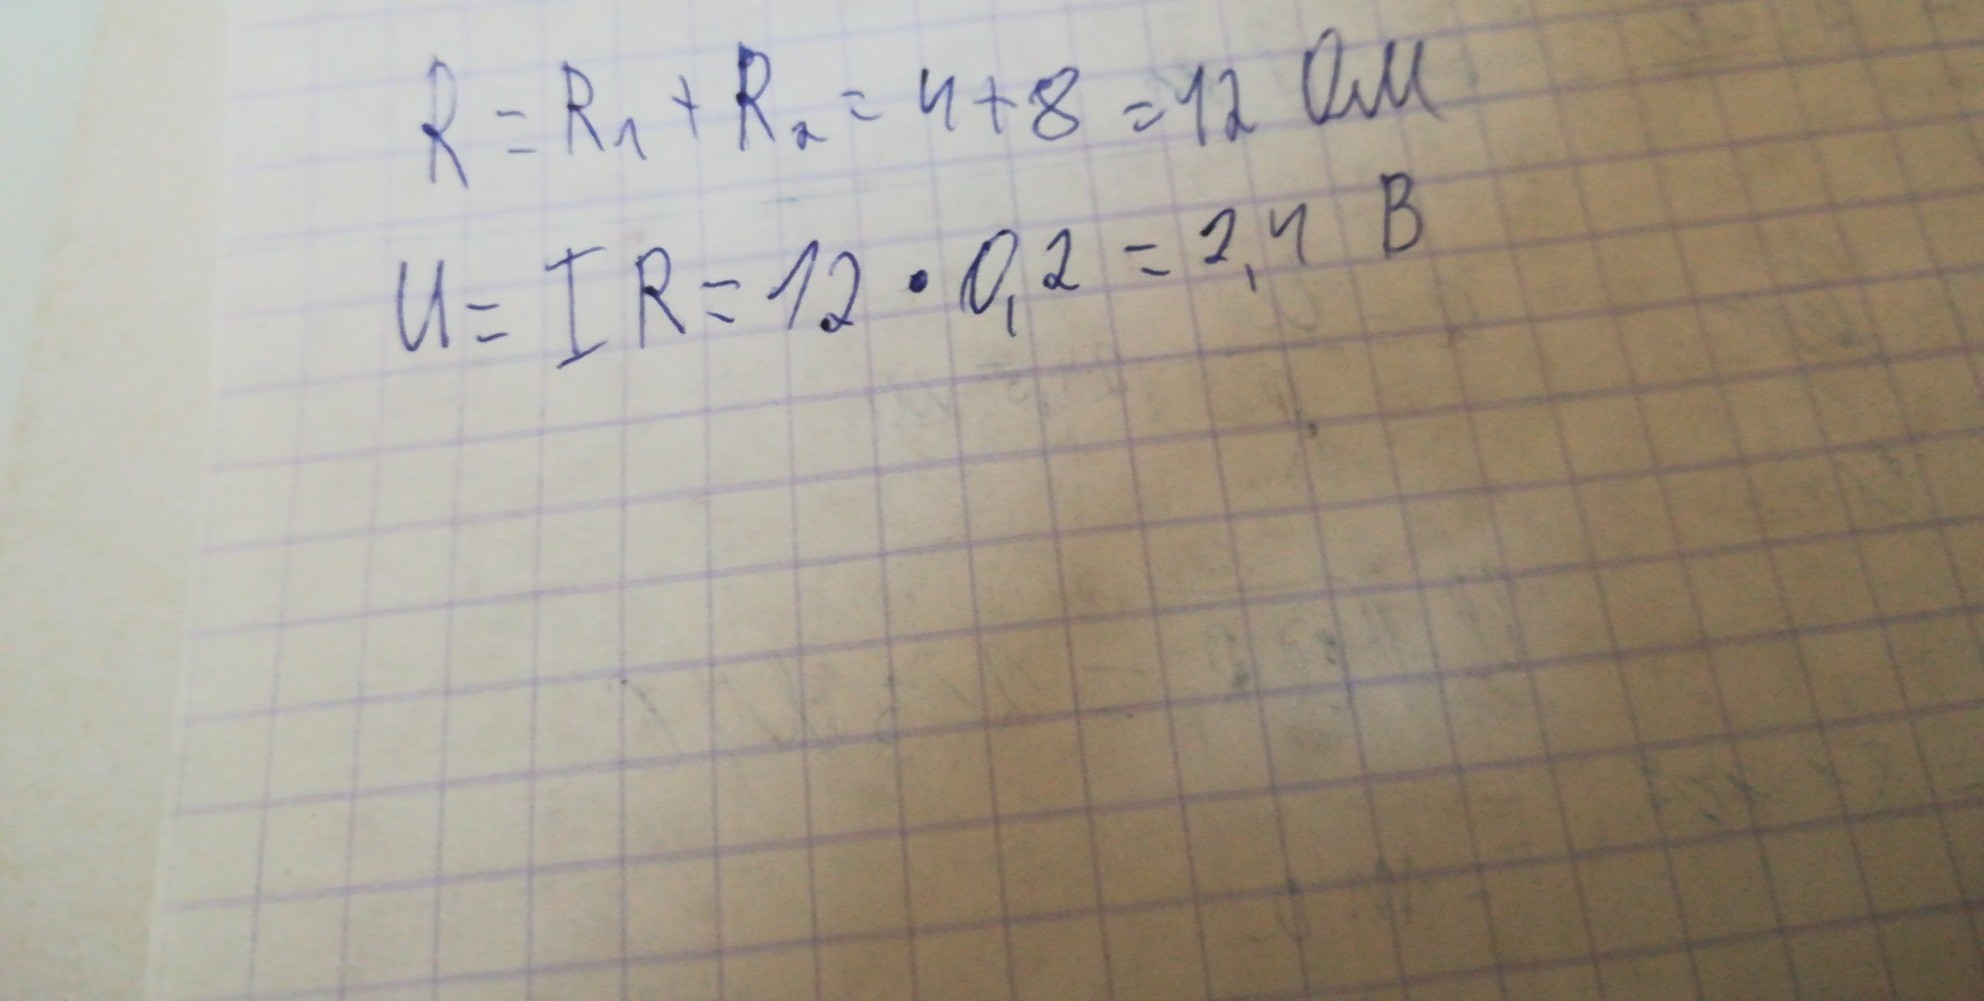 R = R₁ + R₂ = 4+8 = 12 Ом
U = I R = 12 · 0,2 = 2,4 В